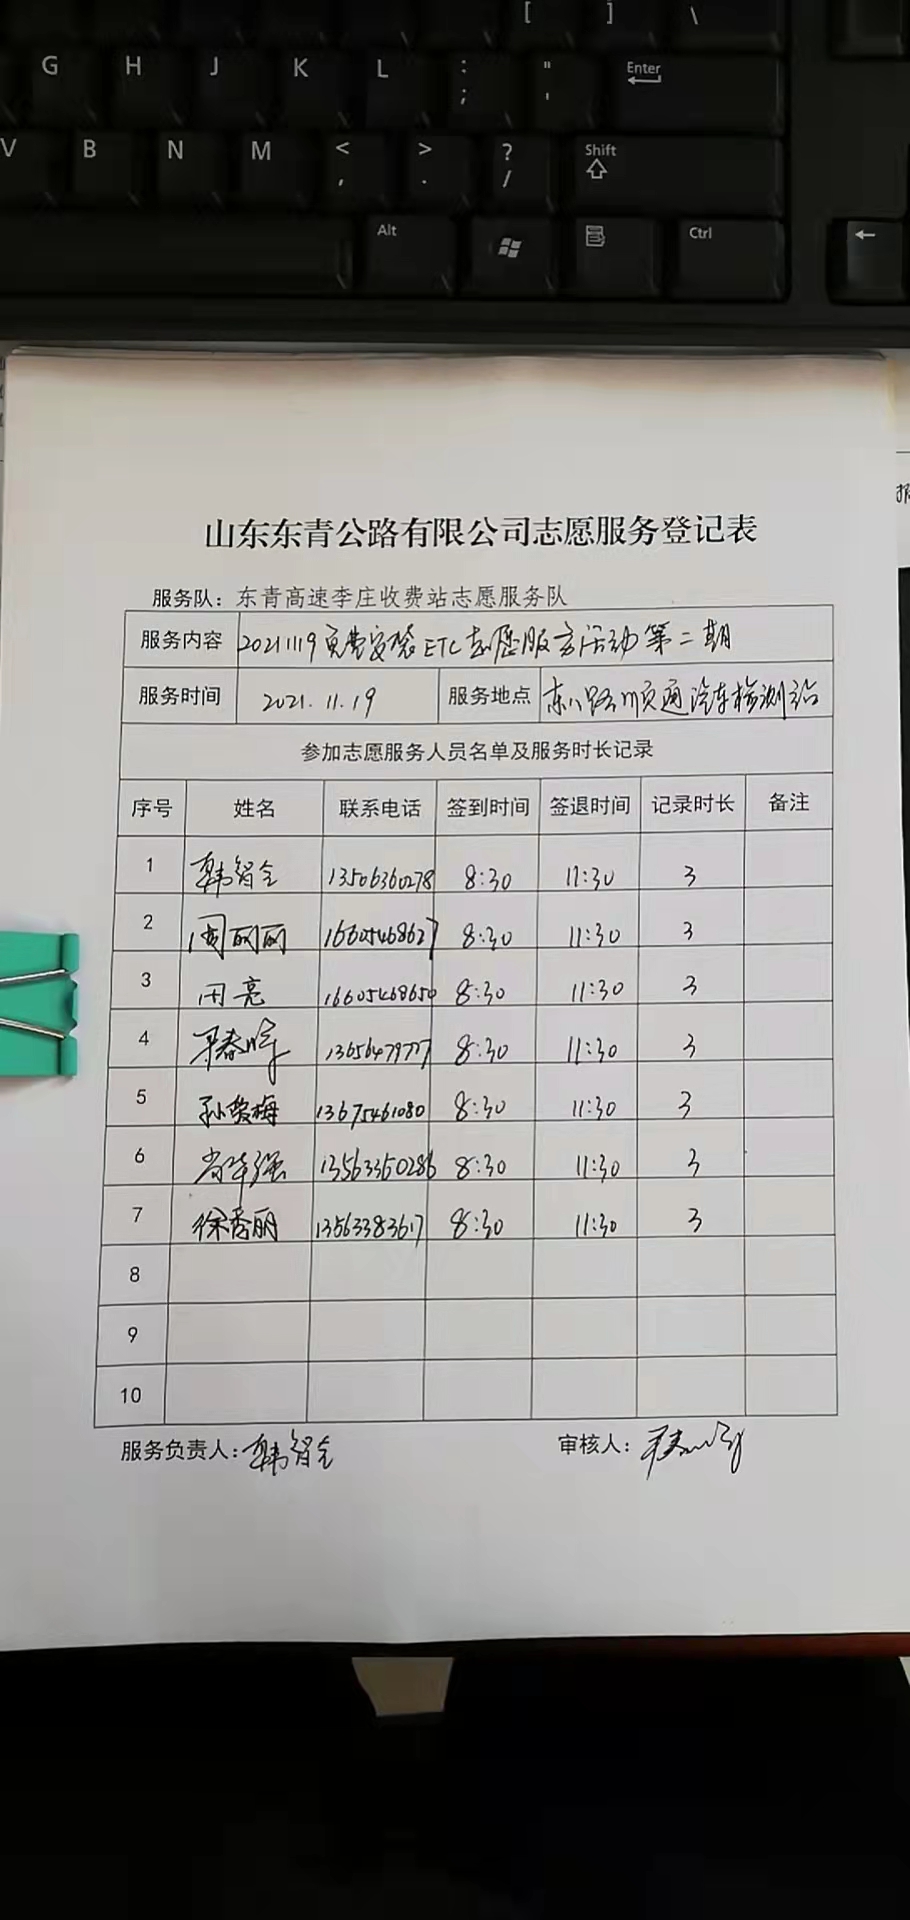 [ ] \
G H J K L : ; " ' Enter
V B N M < , > . ? / Shift
Alt Ctrl
山东东青公路有限公司志愿服务登记表
服务队：东青高速李庄收费站志愿服务队
服务内容 20211119免费安装ETC志愿服务活动第二期
服务时间 2021.11.19 服务地点 东八路顺通汽车检测站
参加志愿服务人员名单及服务时长记录
序号 姓名 联系电话 签到时间 签退时间 记录时长 备注
1 韩智全 13506360278 8:30 11:30 3
2 周丽丽 16605468627 8:30 11:30 3
3 田亮 16605468650 8:30 11:30 3
4 13656479777 8:30 11:30 3
5 孙 梅 13675461080 8:30 11:30 3
6 强 13563360286 8:30 11:30 3
7 徐秀丽 13563383617 8:30 11:30 3
8
9
10
服务负责人：韩智全 审核人：